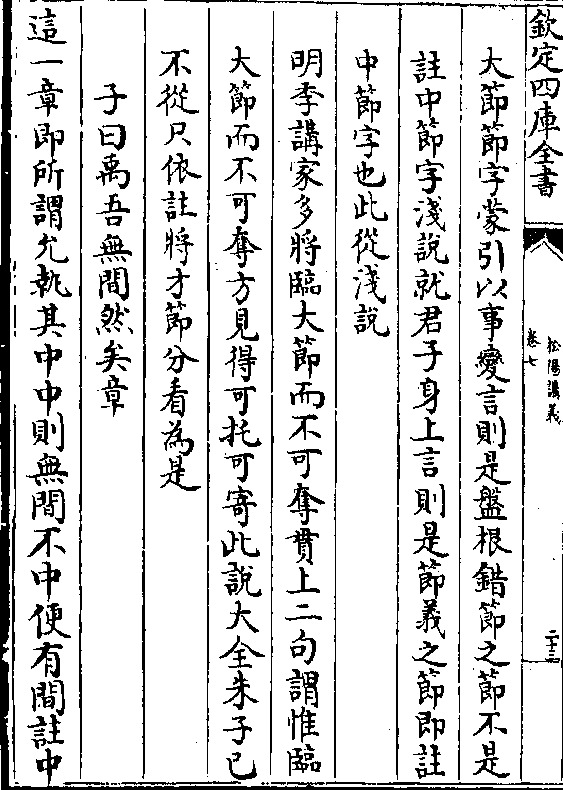 欽定四庫全書
松陽講義
卷七
二十三
大節節字蒙引以事變言則是盤根錯節之節不是
註中節字淺說就君子身上言則是節義之節即註
中節字也此從淺說
明季講家多將臨大節而不可奪貫上二句謂惟臨
大節而不可奪方見得可托可寄此說大全朱子已
不從只依註將才節分看為是
子曰禹吾無間然矣章
這一章即所謂允執其中中則無間不中便有間註中